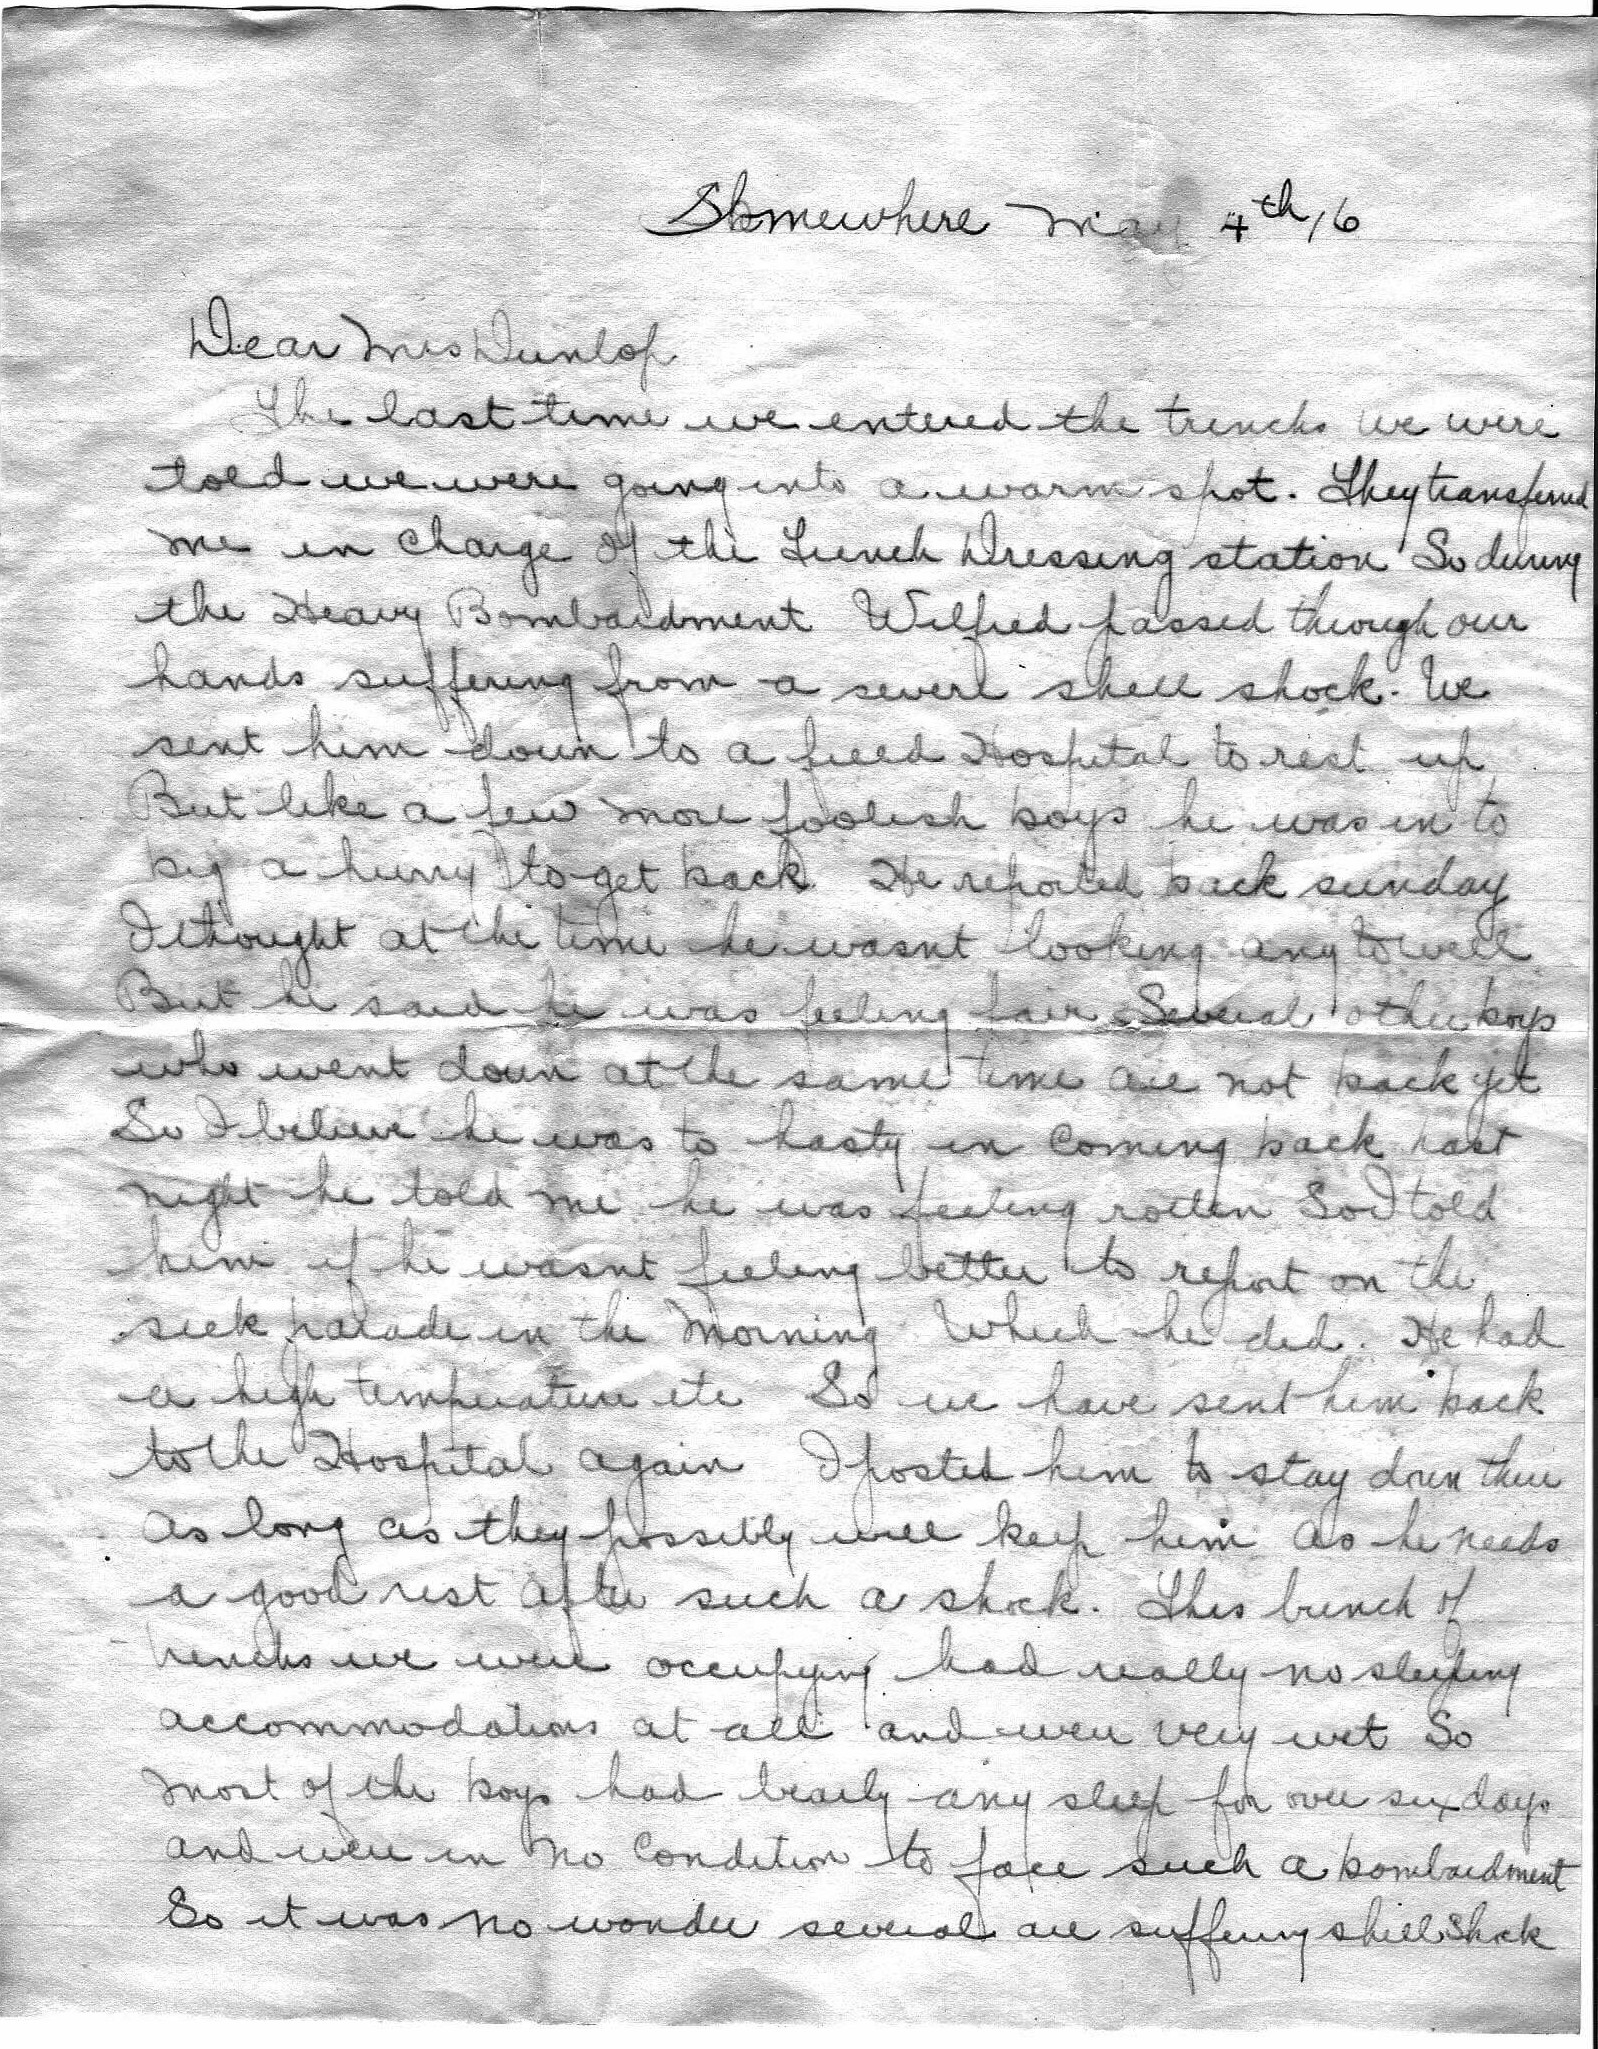 Somewhere May 4th, 16
Dear Mrs Dunlop
The last time we entered the trenchs we were
told we were going into a warm spot. They transfered
me in charge of the Trench Dressing station So during
the Heavy Bombardment Wilfred passed through our
hands suffering from a severe shell shock. We
sent him down to a field Hospital to rest up
But like a few more foolish boys he was in to
big a hurry to get back. He reported back sunday
I thought at the time he wasnt looking any to well
But he said he was feeling fair Several other boys
who went down at the same time are not back yet
So I believe he was to hasty in coming back Last
night he told me he was feeling rotten So I told
him if he wasnt feeling better to report on the
sick parade in the Morning Which he did. He had
a high temperature etc So we have sent him back
to the Hospital again I posted him to stay down there
as long as they possibly will keep him as he needs
a good rest after such a shock. This bunch of
trenchs we were occupying had really no sleeping
accommodations at all and were very wet So
most of the boys had bearly any sleep for over six days
and were in no Condition to face such a bombardment
So it was no wonder several are suffering shell shock